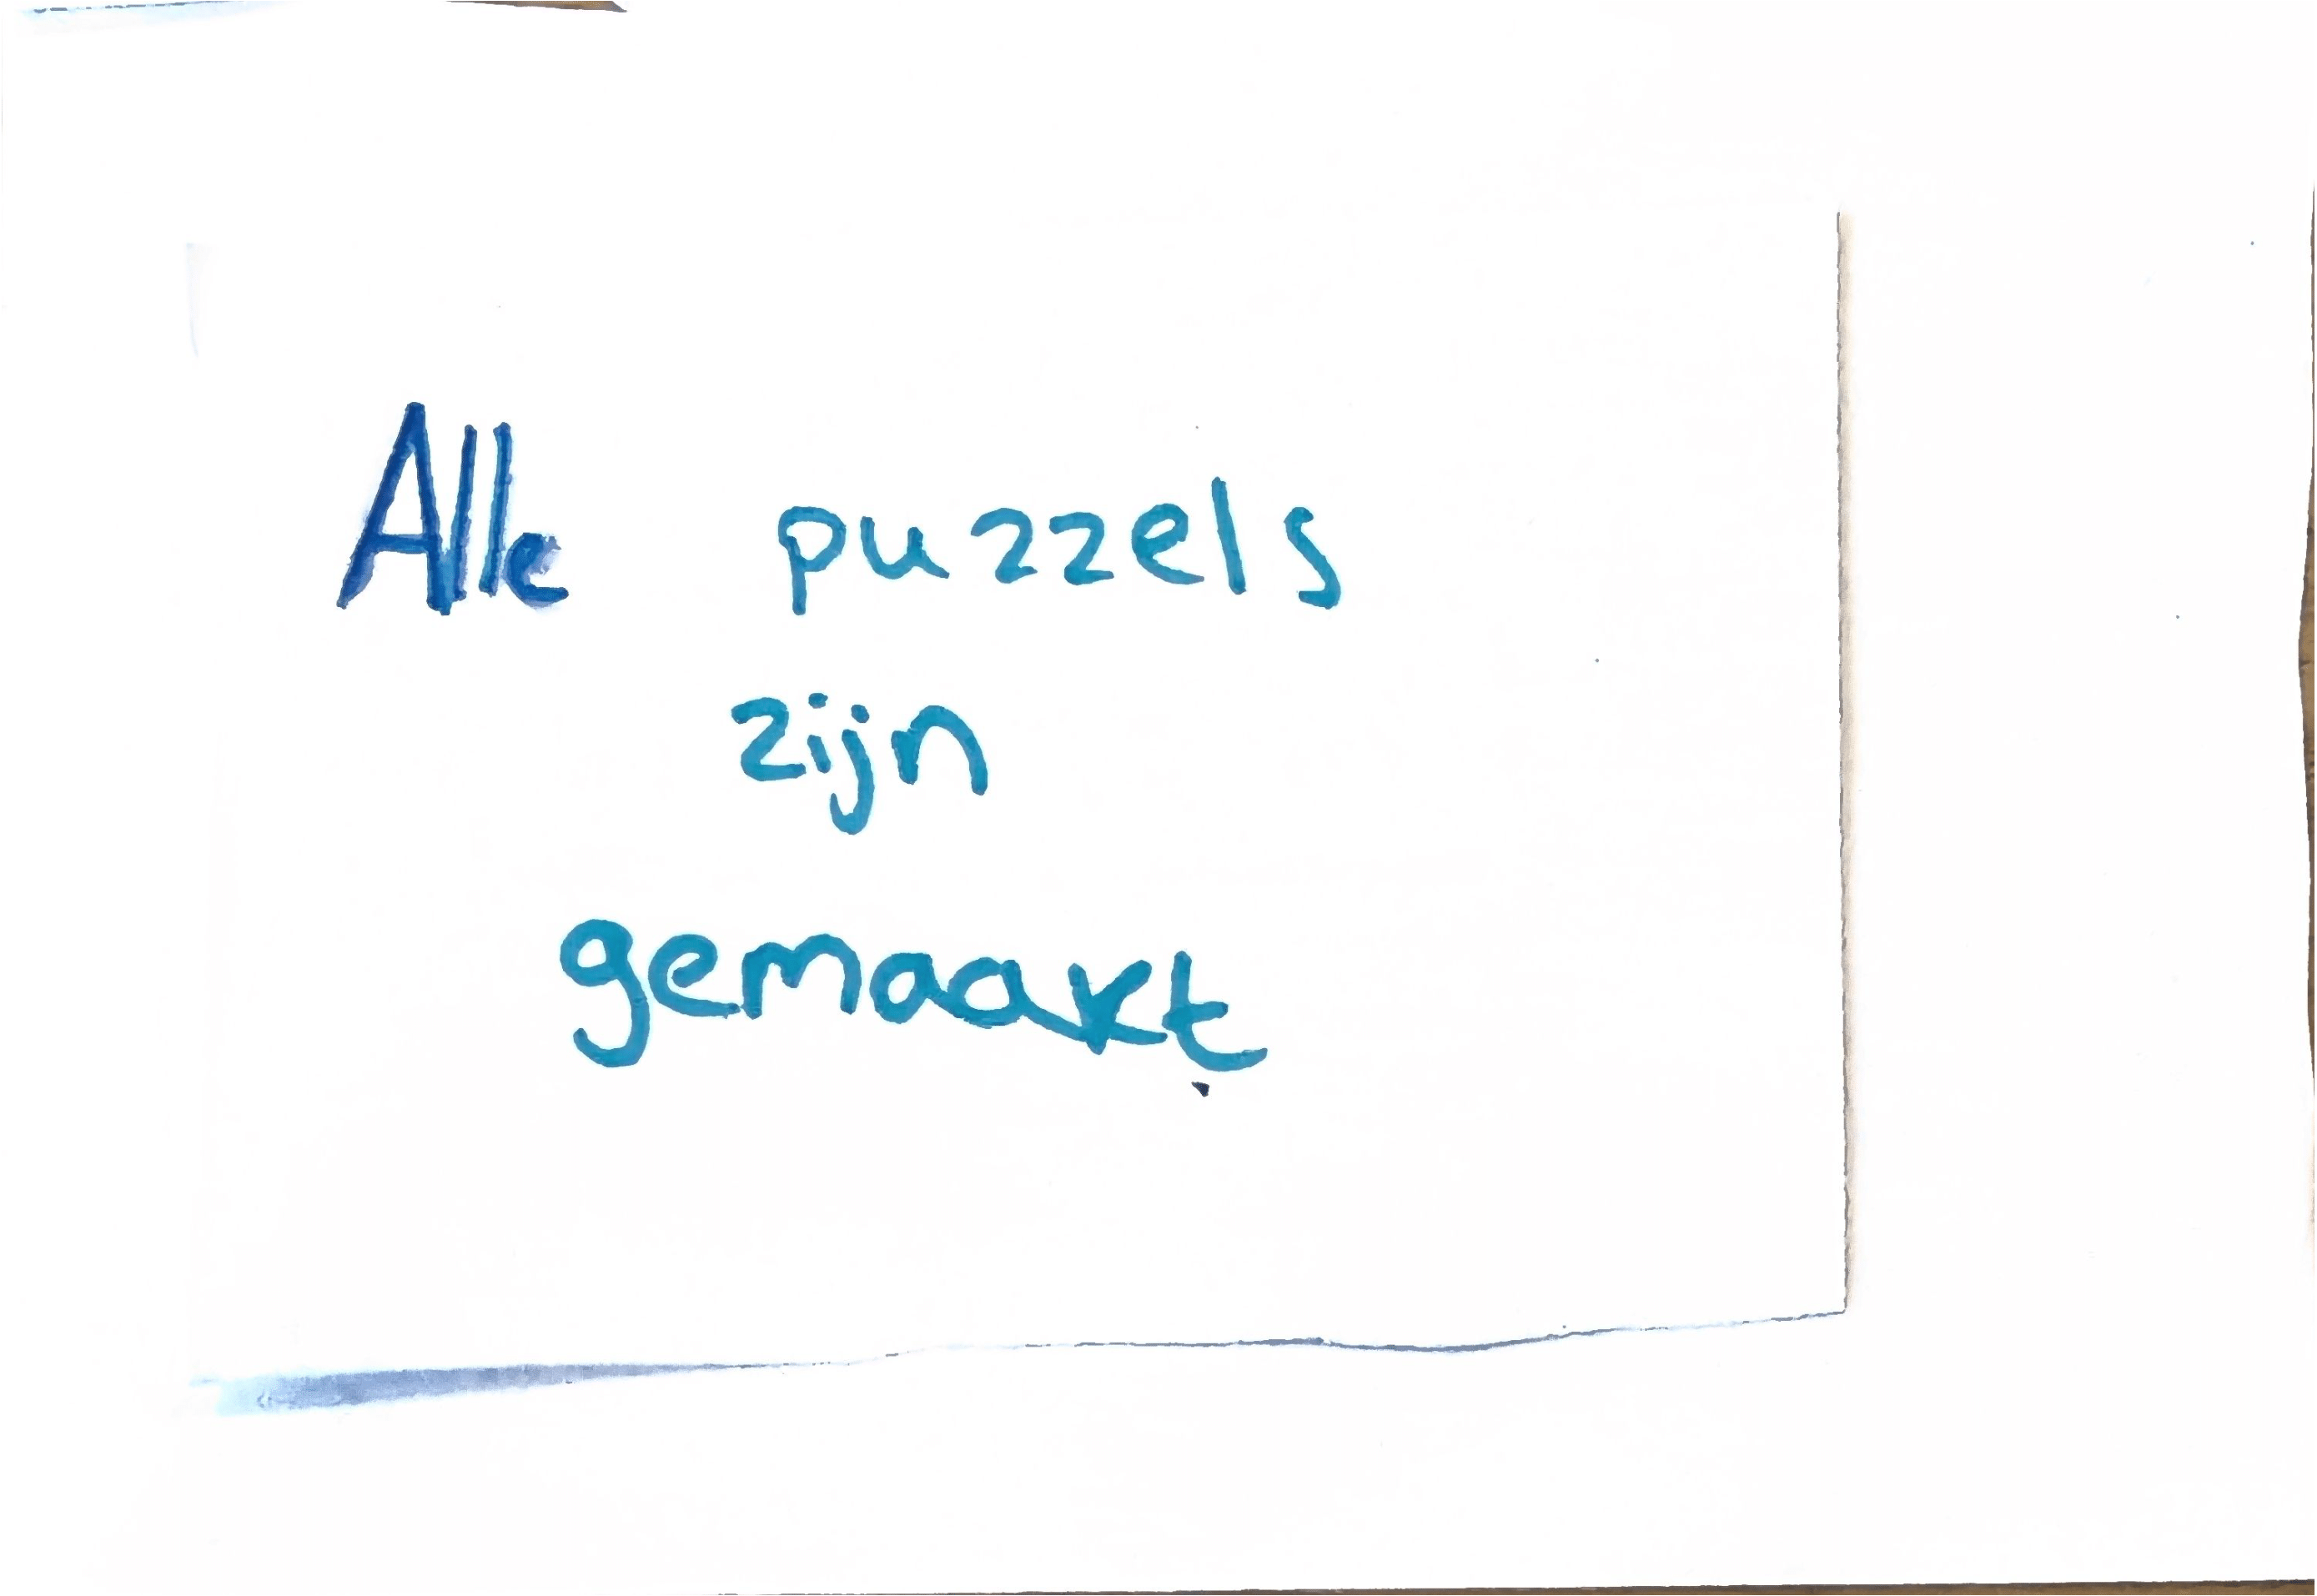 Alle puzzels
zijn
gemaakt